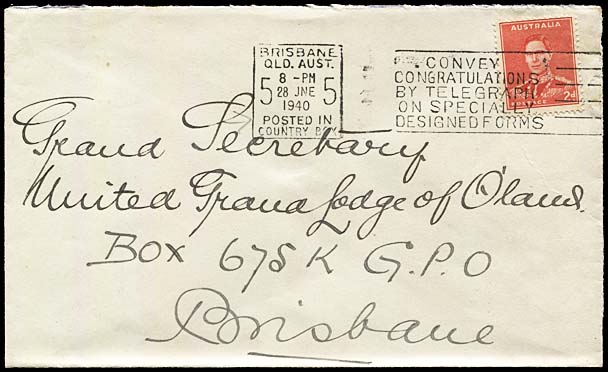 BRISBANE
QLD. AUST.
8 - PM
5 28 JNE 5
1940
POSTED IN
COUNTRY BOX
CONVEY
CONGRATULATIONS
BY TELEGRAPH
ON SPECIALLY
DESIGNED FORMS
AUSTRALIA
POSTAGE 2d
Grand Secretary
United Grand Lodge of Q'land.
Box 675K G.P.O
Brisbane